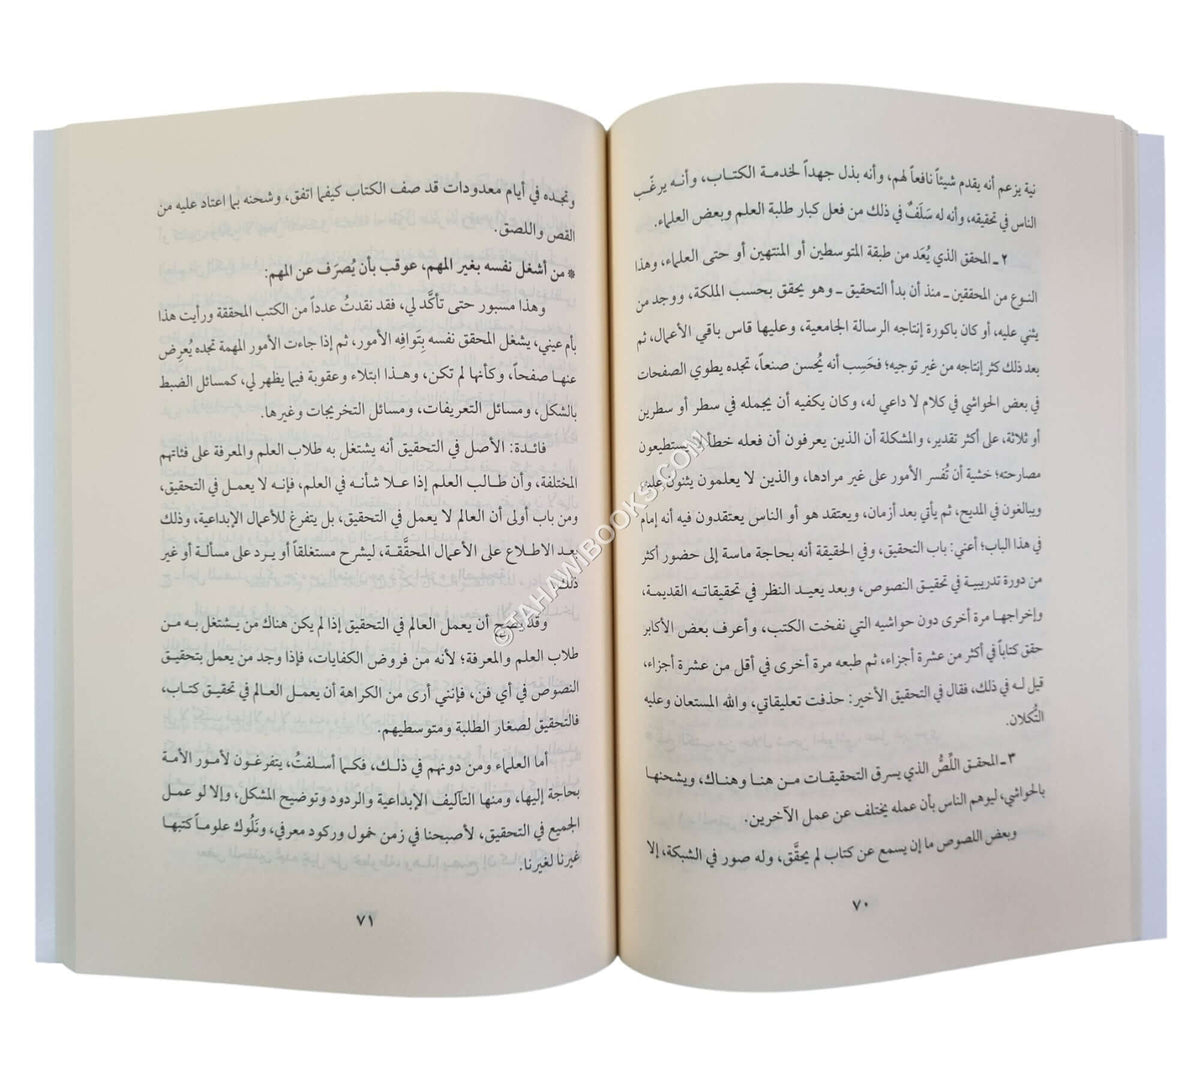 نية يزعم أنه يقدم شيئاً نافعاً لهم، وأنه بذل جهداً لخدمة الكتـاب، وأنـه يرغّـب
الناس في تحقيقه، وأنه له سَلَفٌ في ذلك من فعل كبار طلبة العلم وبعض العلماء.
٢ ـ المحقق الذي يُعَد من طبقة المتوسطين أو المنتهين أو حتى العلماء، وهذا
النـوع من المحققين ـ منذ أن بدأ التحقيق ـ وهو يحقق بحسب الملكة، ووجد من
يثني عليه، أو كان باكورة إنتاجه الرسالة الجامعية، وعليها قاس باقي الأعمال، ثم
بعد ذلك كثر إنتاجه من غير توجيه؛ فحَسِب أنه يُحسن صنعاً، تجده يطوي الصفحات
في بعض الحواشي في كلام لا داعي له، وكان يكفيه أن يجمله في سطر أو سطرين
أو ثلاثة، على أكثر تقدير، والمشكلة أن الذين يعرفون أن فعله خطأ لا يستطيعون
مصارحته؛ خشية أن تُفسر الأمور على غير مرادها، والذين لا يعلمون يثنون عليه
ويبالغون في المديح، ثم يأتي بعد أزمان، ويعتقد هو أو الناس يعتقدون فيه أنه إمام
في هذا الباب؛ أعني: باب التحقيق، وفي الحقيقة أنه بحاجة ماسة إلى حضور أكثر
من دورة تدريبيـة في تحقيق النصوص، وبعد يعيـد النظر في تحقيقاتـه القديمـة،
وإخراجهـا مرة أخرى دون حواشيه التي نفخت الكتب، وأعرف بعض الأكابر
حقق كتاباً في أكثر من عشرة أجزاء، ثم طبعه مرة أخرى في أقل من عشرة أجزاء،
قيل لـه في ذلك، فقال في التحقيق الأخير: حذفت تعليقاتي، والله المستعان وعليه
التُّكلان.
٣ ـ المحقق اللِّصُّ الذي يسرق التحقيقات مـن هنـا وهنـاك، ويشحنهـا
بالحواشي، ليوهم الناس بأن عمله يختلف عن عمل الآخرين.
وبعض اللصوص ما إن يسمع عن كتاب لم يحقَّق، وله صور في الشبكة، إلا
٧٠
وتجده في أيام معدودات قد صف الكتاب كيفما اتفق، وشحنه بما اعتاد عليه من
القص واللصق.
* من أشغل نفسه بغير المهم، عوقب بأن يُصرَف عن المهم:
وهذا مسبور حتى تأكَّد لي، فقد نقدتُ عدداً من الكتب المحققة ورأيت هذا
بأم عيني، يشغل المحقق نفسه بِتَوافه الأمور، ثم إذا جاءت الأمور المهمة تجده يُعرِض
عنهـا صفحاً، وكأنها لم تكن، وهـذا ابتلاء وعقوبة فيما يظهر لي، كمسائل الضبط
بالشكل، ومسائل التعريفات، ومسائل التخريجات وغيرها.
فائـدة: الأصل في التحقيق أنه يشتغل به طلاب العلم والمعرفة على فئاتهم
المختلفة، وأن طالب العلم إذا عـلا شـأنـه في العلم، فإنـه لا يعمـل في التحقيق،
ومن باب أولى أن العالم لا يعمل في التحقيق، بل يتفرغ للأعمال الإبداعية، وذلك
بعد الاطلاع على الأعمال المحقَّقـة، ليشرح مستغلقاً أو يـرد على مسـألة أو غير
ذلك.
وقد يصح أن يعمل العالم في التحقيق إذا لم يكن هناك من يشتغل بـه مـن
طلاب العلم والمعرفة؛ لأنه من فروض الكفايات، فإذا وجد من يعمل بتحقيق
النصوص في أي فن، فإنني أرى من الكراهة أن يعمـل العالم في تحقيـق كتـاب،
فالتحقيق لصغار الطلبة ومتوسطيهم.
أما العلماء ومن دونهم في ذلـك، فكـما أسلفتُ، يتفرغون لأمور الأمة
بحاجة إليها، ومنها التآليف الإبداعية والردود وتوضيح المشكل، وإلا لو عمل
الجميع في التحقيق، لأصبحنا في زمن خمول وركود معرفي، ونَلُوك علوماً كتبها
غيرنا لغيرنا.
٧١
STAHAWIBOOKS.COM